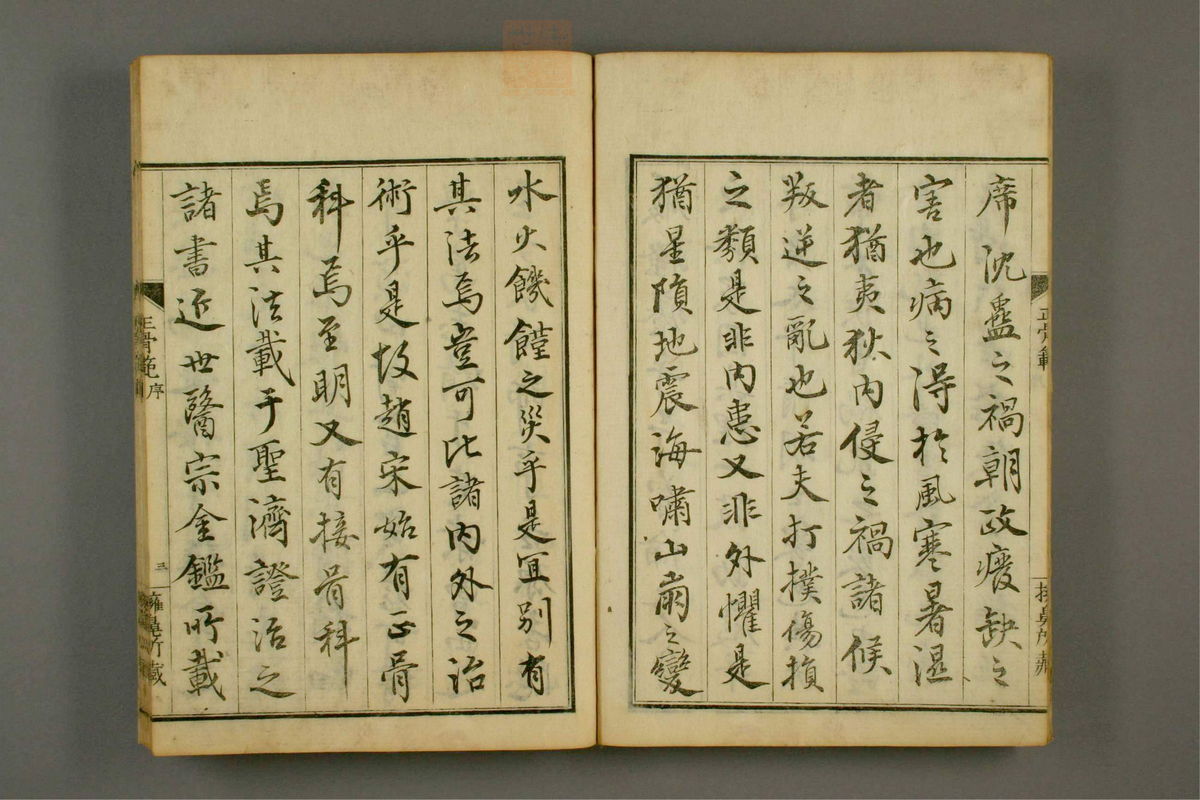 席沈蠱之禍朝政癈缺之
害也病之得於風寒暑濕
者猶夷狄内侵之禍諸候
叛逆之亂也若夫打撲傷損
之類是非内患又非外懼是
猶星隕地震海嘯山崩之變
水火饑饉之災乎是宜別有
其法焉豈可比諸内外之治
術乎是故趙宋始有正骨
科焉至明又有接骨科
焉其法載于聖濟證治之
諸書近世醫宗金鑑所載
正骨範序
三